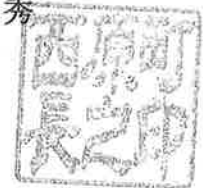 秀
西原町
長之印